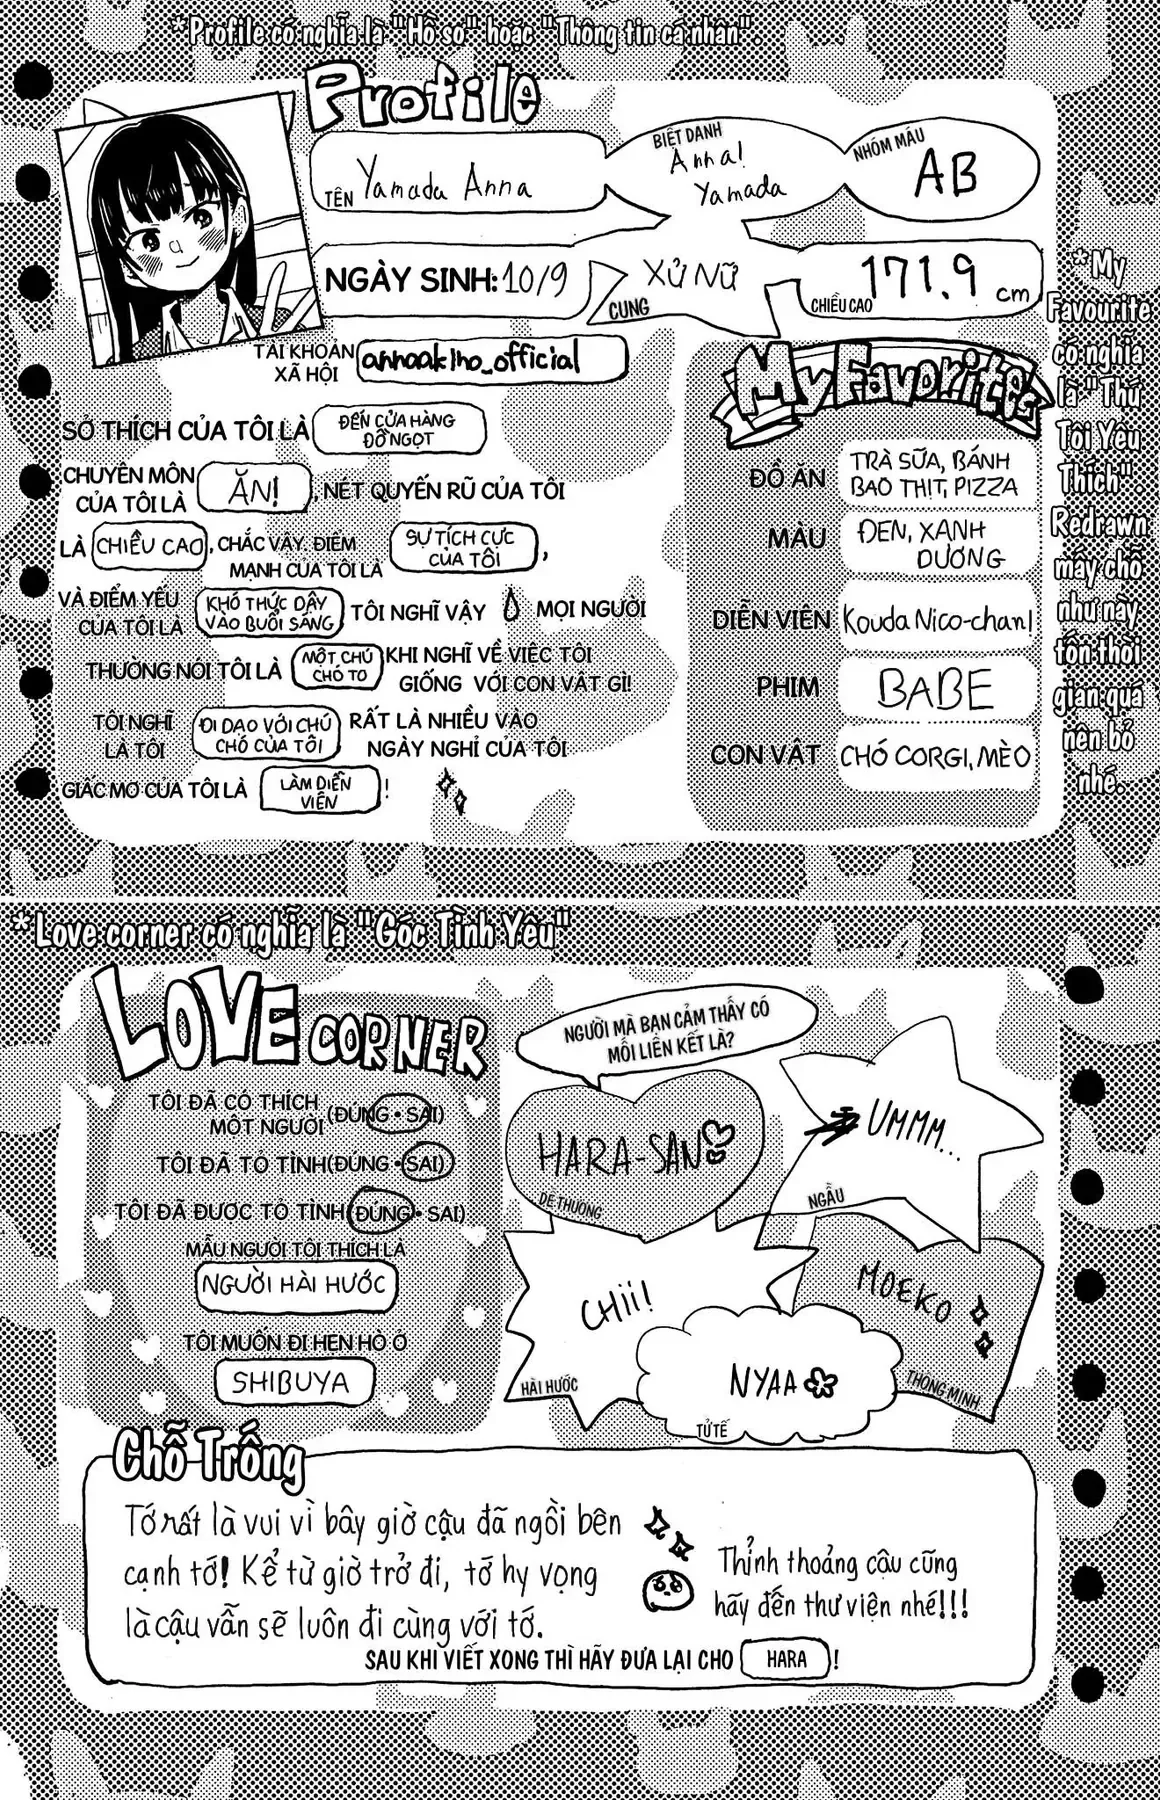 *Profile có nghĩa là "Hồ sơ" hoặc "Thông tin cá nhân".
Profile
TÊN Yamada Anna
BIỆT DANH
Anna!
Yamada
NHÓM MÁU
AB
NGÀY SINH: 10/9
XỬ NỮ
CUNG
171.9 cm
CHIỀU CAO
TÀI KHOẢN
XÃ HỘI
annaakino_official
SỞ THÍCH CỦA TÔI LÀ
ĐẾN CỬA HÀNG
ĐỒ NGỌT
CHUYÊN MÔN
CỦA TÔI LÀ
ĂN!
, NÉT QUYẾN RŨ CỦA TÔI
LÀ CHIỀU CAO, CHẮC VẬY. ĐIỂM
MẠNH CỦA TÔI LÀ
SỰ TÍCH CỰC
CỦA TÔI
,
VÀ ĐIỂM YẾU
CỦA TÔI LÀ
KHÓ THỨC DẬY
VÀO BUỔI SÁNG
TÔI NGHĨ VẬY MỌI NGƯỜI
THƯỜNG NÓI TÔI LÀ
MỘT CHÚ
CHÓ TO
KHI NGHĨ VỀ VIỆC TÔI
GIỐNG VỚI CON VẬT GÌ!
TÔI NGHĨ
LÀ TÔI
ĐI DẠO VỚI CHÚ
CHÓ CỦA TÔI
RẤT LÀ NHIỀU VÀO
NGÀY NGHỈ CỦA TÔI
GIẤC MƠ CỦA TÔI LÀ
LÀM DIỄN
VIÊN
!
My Favorites
ĐỒ ĂN
TRÀ SỮA, BÁNH
BAO THỊT, PIZZA
MÀU
ĐEN, XANH
DƯƠNG
DIỄN VIÊN
Kouda Nico-chan!
PHIM
BABE
CON VẬT
CHÓ CORGI, MÈO
*My
Favourite
có nghĩa
là "Thứ
Tôi Yêu
Thích"
Redrawn
mấy chỗ
như này
tốn thời
gian quá
nên bỏ
nhé.
*Love corner có nghĩa là "Góc Tình Yêu"
LOVE CORNER
TÔI ĐÃ CÓ THÍCH
MỘT NGƯỜI
(ĐÚNG • SAI)
TÔI ĐÃ TỎ TÌNH (ĐÚNG • SAI)
TÔI ĐÃ ĐƯỢC TỎ TÌNH (ĐÚNG • SAI)
MẪU NGƯỜI TÔI THÍCH LÀ
NGƯỜI HÀI HƯỚC
TÔI MUỐN ĐI HẸN HÒ Ở
SHIBUYA
NGƯỜI MÀ BẠN CẢM THẤY CÓ
MỐI LIÊN KẾT LÀ?
HARA-SAN
DỄ THƯƠNG
UMMM...
NGẦU
CHII!
HÀI HƯỚC
MOEKO
THÔNG MINH
NYAA
TỬ TẾ
Chỗ Trống
Tớ rất là vui vì bây giờ cậu đã ngồi bên
cạnh tớ! Kể từ giờ trở đi, tớ hy vọng
là cậu vẫn sẽ luôn đi cùng với tớ.
Thỉnh thoảng cậu cũng
hãy đến thư viện nhé!!!
SAU KHI VIẾT XONG THÌ HÃY ĐƯA LẠI CHO HARA !